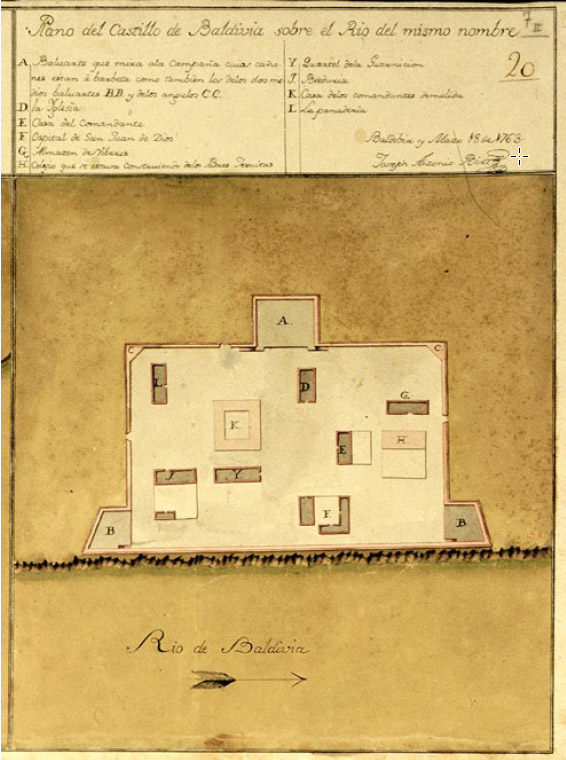 Plano del Castillo de Baldivia sobre el Rio del mismo nombre
7
II
20
A Baluarte que mira ala Campaña cuias caño
nes estan á barbeta como tambien los delos dos me
dios baluartes BB y delos angulos CC.
D la Yglesia
E Casa del Comandante
F Ospital de San Juan de Dios
G Almazen de Viberes
H Colegio que se estava Construiendo delos Padres Jesuitas
Y Quartel dela Guarnicion
J
K Casa delos comandantes demolida
L La panaderia
Baldibia y Marzo 18 de 1763
Joseph Antonio
A
C
C
L
D
G
K
E
H
J
Y
F
B
B
Rio de Baldivia